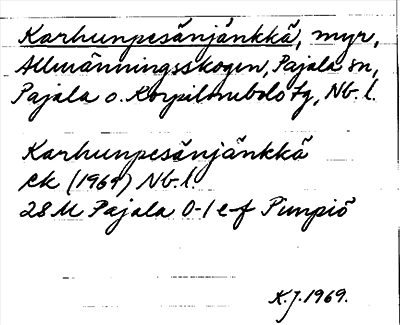 Karhunpesänjänkkä, myr,
Allmänningsskogen, Pajala sn,
Pajala o. Korpilombolo tg, Nb. l.
Karhunpesänjänkkä
ek (1969) Nb. l.
28 M Pajala 0-1 e-f Pimpiö
K.J. 1969.